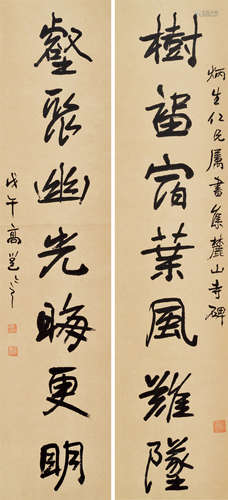 炳生仁兄屬書集麓山寺碑
樹留宿葉風難墜
壑聚幽光晦更明
戊午高邕之